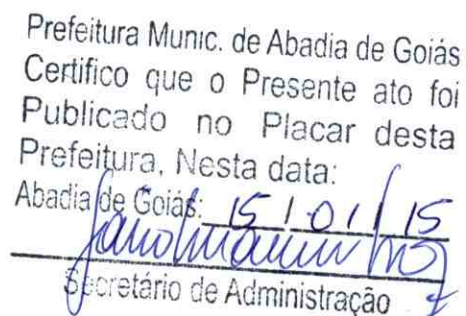 Prefeitura Munic. de Abadia de Goiás
Certifico que o Presente ato foi
Publicado no Placar desta
Prefeitura, Nesta data:
Abadia de Goiás: 15 / 01 / 15
Secretário de Administração